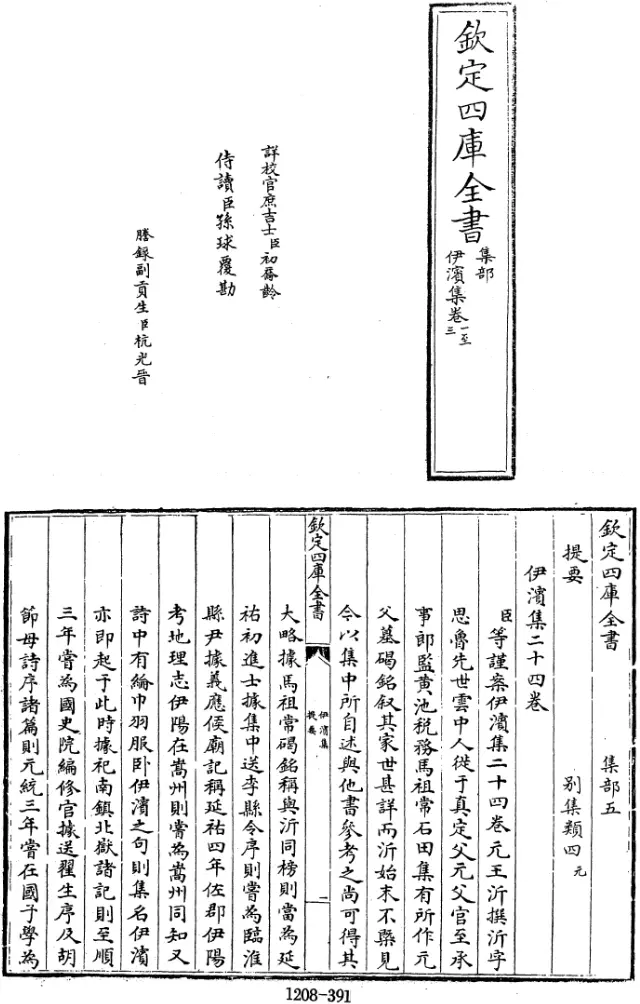 欽定四庫全書
集部
伊濱集卷一至三
詳校官庶吉士臣初喬齡
侍讀臣孫球覆勘
謄錄副貢生臣杭光晉
欽定四庫全書 集部五
提要 別集類四元
伊濱集二十四卷
臣等謹案伊濱集二十四卷元王沂撰沂字
思魯先世雲中人徙于真定父元父官至承
事郎監黃池稅務馬祖常石田集有所作元
父墓碣銘叙其家世甚詳而沂始末不槩見
今以集中所自述與他書參考之尚可得其
欽定四庫全書
伊濱集
提要
一
大略據馬祖常碣銘稱與沂同榜則當為延
祐初進士據集中送李縣令序則嘗為臨淮
縣尹據義應侯廟記稱延祐四年佐郡伊陽
考地理志伊陽在嵩州則嘗為嵩州同知又
詩中有綸巾羽服卧伊濱之句則集名伊濱
亦即起于此時據祀南鎮北嶽諸記則至順
三年嘗為國史院編修官據送翟生序及胡
節母詩序諸篇則元統三年嘗在國子學為
1208-391